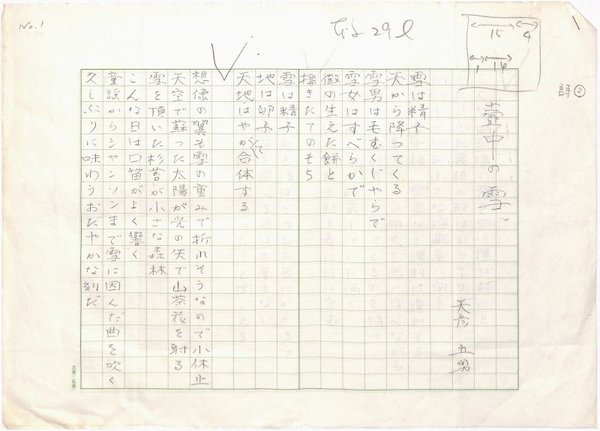 No. 1
29
15
4
1
14
1
詩②
壺中の雪
天彦 五男
雪は精子
天から降ってくる
雪男は毛むくじゃらで
雪女はすべらかで
黴の生えた餅と
搗きたてのもち
雪は精子
地は卵子
天地はやがて合体する
想像の翼も雪の重みで折れそうなので小休止
天空で蘇った太陽が光の矢で山茶花を射る
雪を頂いた杉苔が小さな森林
こんな日は口笛がよく響く
童謡からシャンソンまで雪に因んだ曲を吹く
久しぶりに味わうおだやかな刻だ